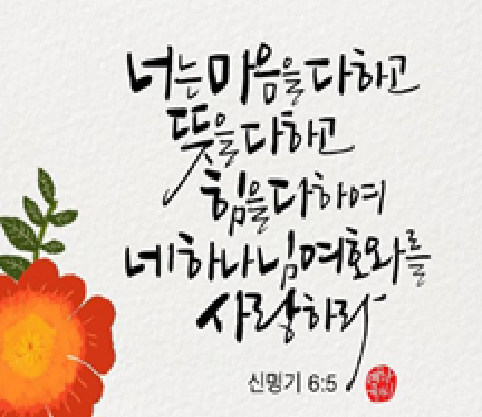 너는마음을다하고
뜻을다하고
힘을다하여
네하나님여호와를
사랑하라
신명기 6:5